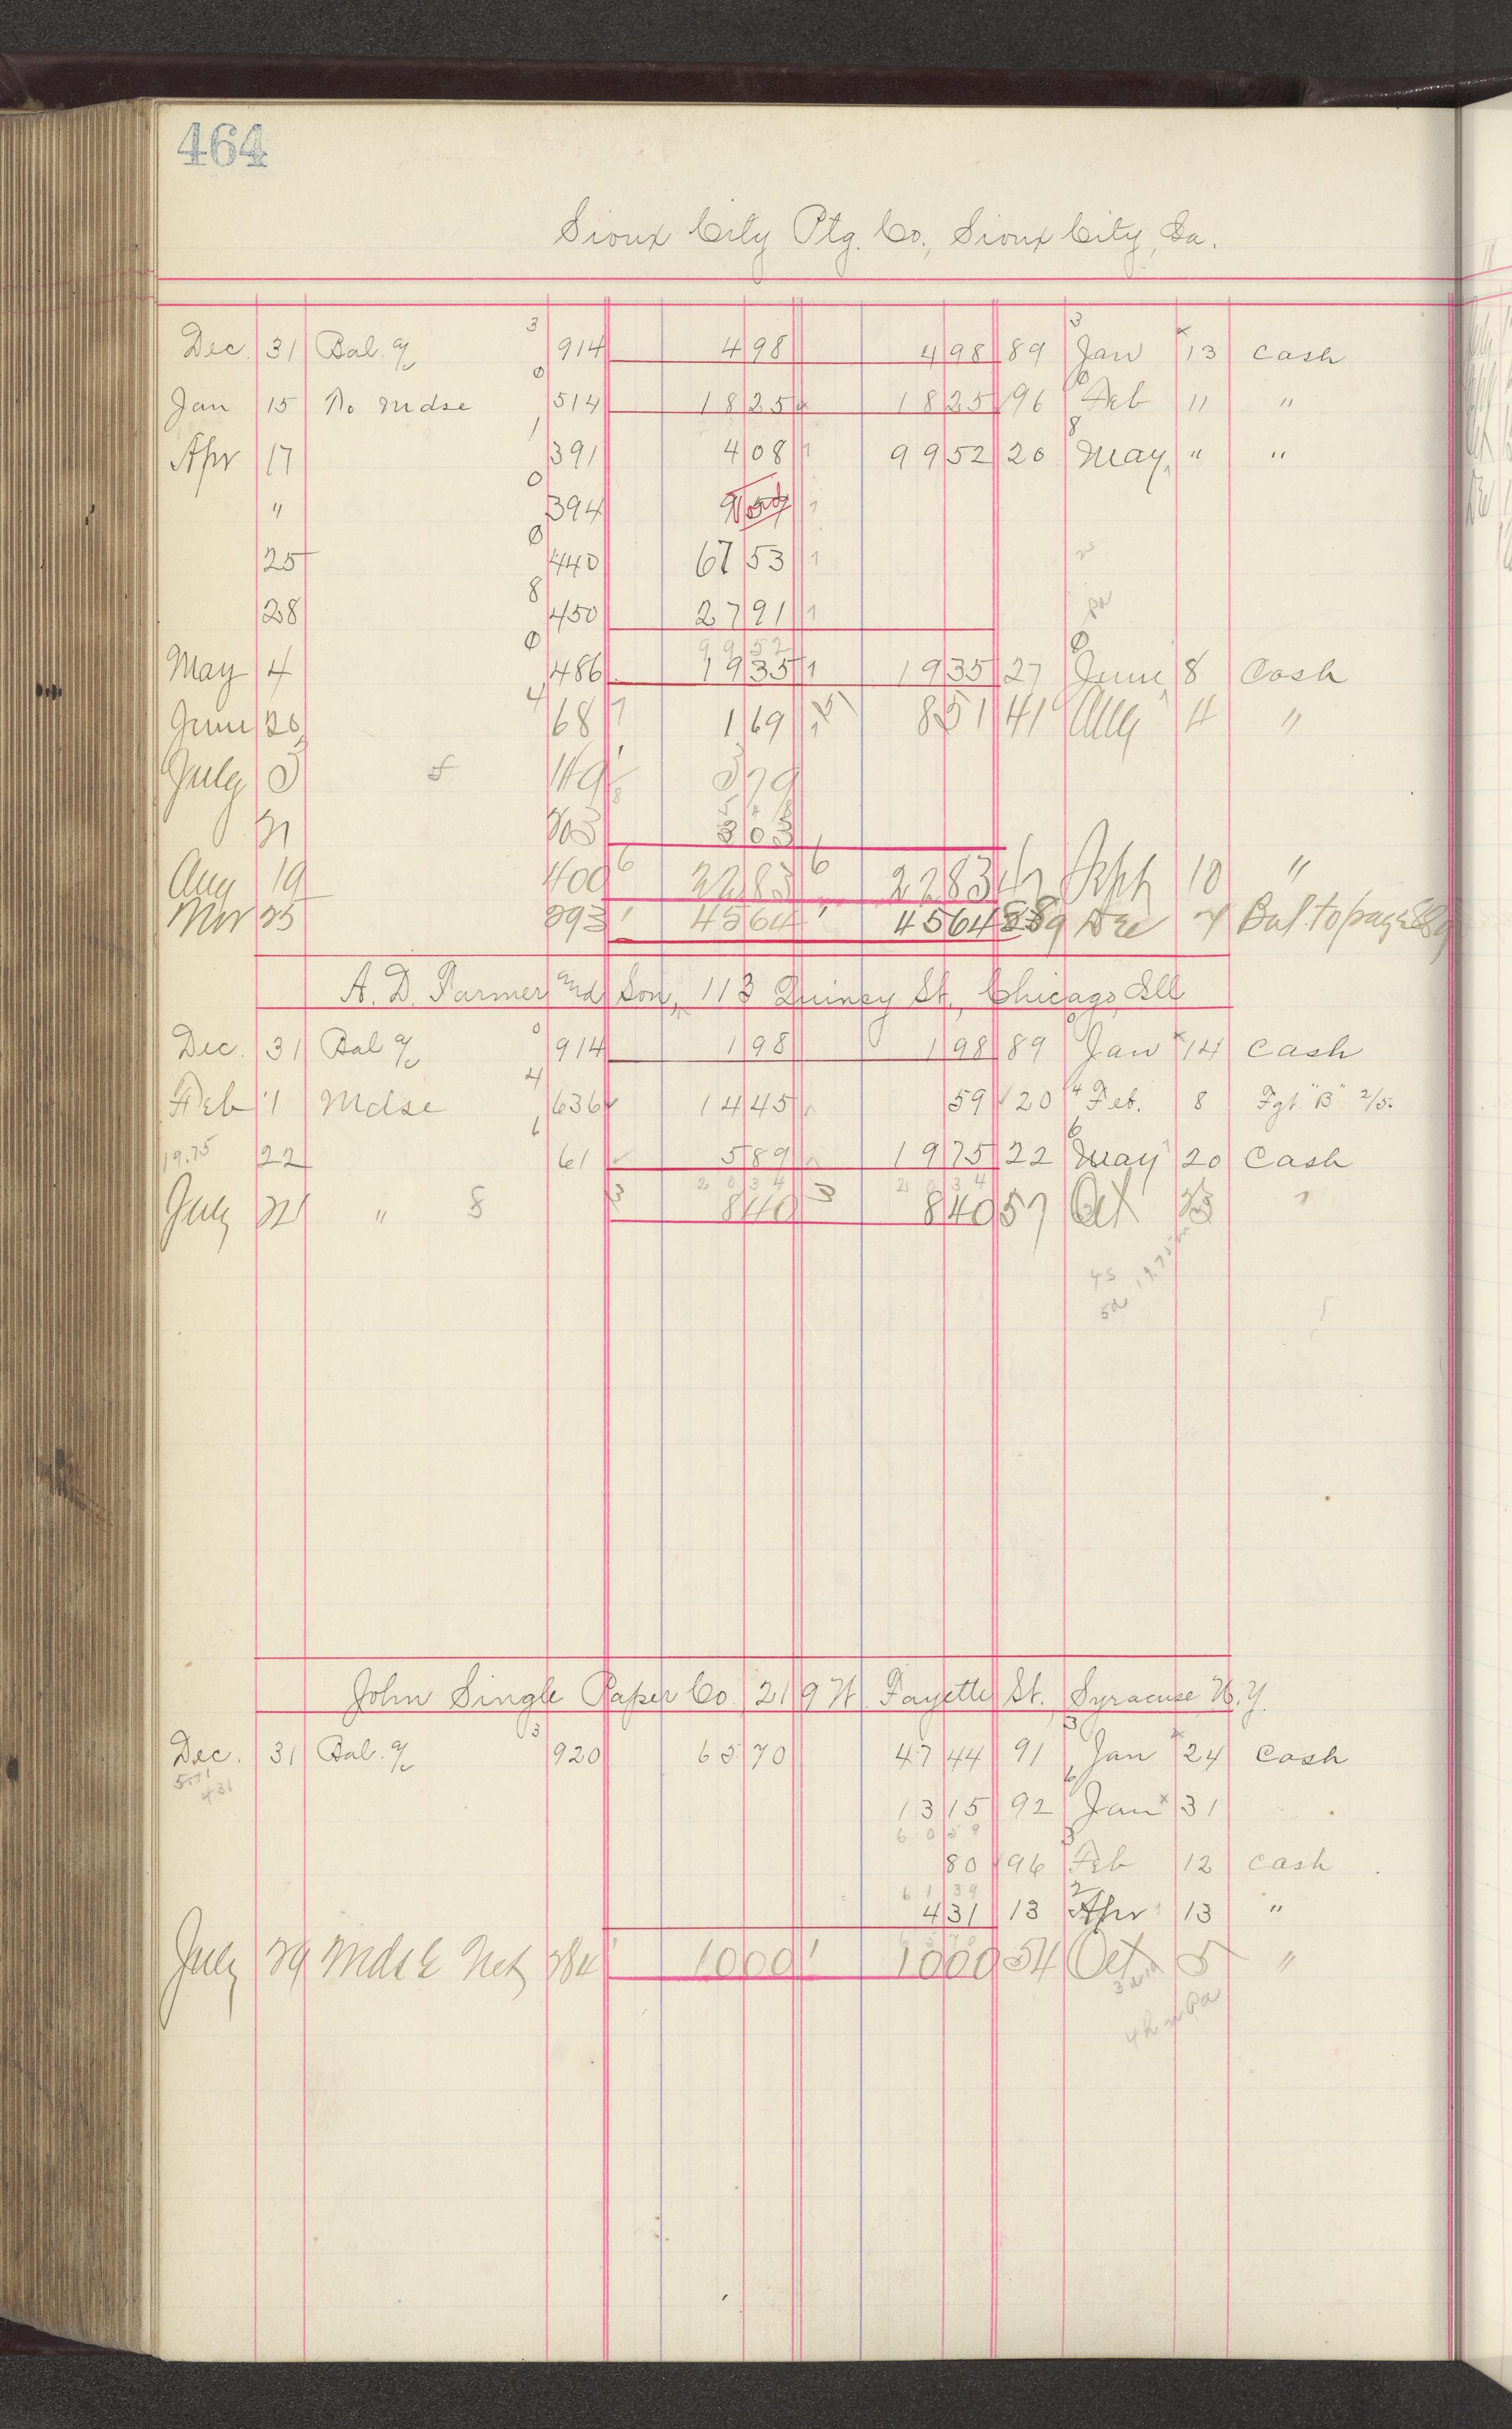 464
Sioux City Ptg. Co., Sioux City, Ia.
Dec. 31 Bal. a/c 3 914 498 498 89 3 Jan 13 Cash
Jan 15 To Mdse 0 514 1825 1825 96 0 Feb 11 "
Apr 17 1 391 408 1 9952 20 8 May " "
" 0 394 1
25 0 440 6753 1
28 8 450 2791 1
9952
May 4 0 486 1935 1 1935 27 0 June 8 Cash
June 26 4 68 169 851 41 Aug 11 "
July 3 119 379
548
31 303 303
Aug 19 400 6 2283 6 2283 Sept 10 "
Nov 25 293 1 4564 1 4564 Dec Bal. to page
A. D. Farmer and Son, 113 Quincy St., Chicago Ill
Dec. 31 Bal a/c 0 914 198 198 89 0 Jan 14 Cash
Feb 1 Mdse 4 636 1445 59 20 4 Feb. 8 Fgt "B" 2/5.
19.75 22 6 61 589 1975 22 6 May 20 Cash
2034 2034
July 21 " 8 3 840 3 840 57 Oct 23 "
John Single Paper Co. 219 W. Fayette St. Syracuse N.Y.
Dec. 31 Bal. a/c 3 920 6570 4744 91 3 Jan 24 Cash
431
1315 92 6 Jan 31
6059
80 96 3 Feb 12 Cash
6139
431 13 2 Apr 13 "
July 29 Mdse Net 284 1 1000 1 1000 54 Oct 5 "